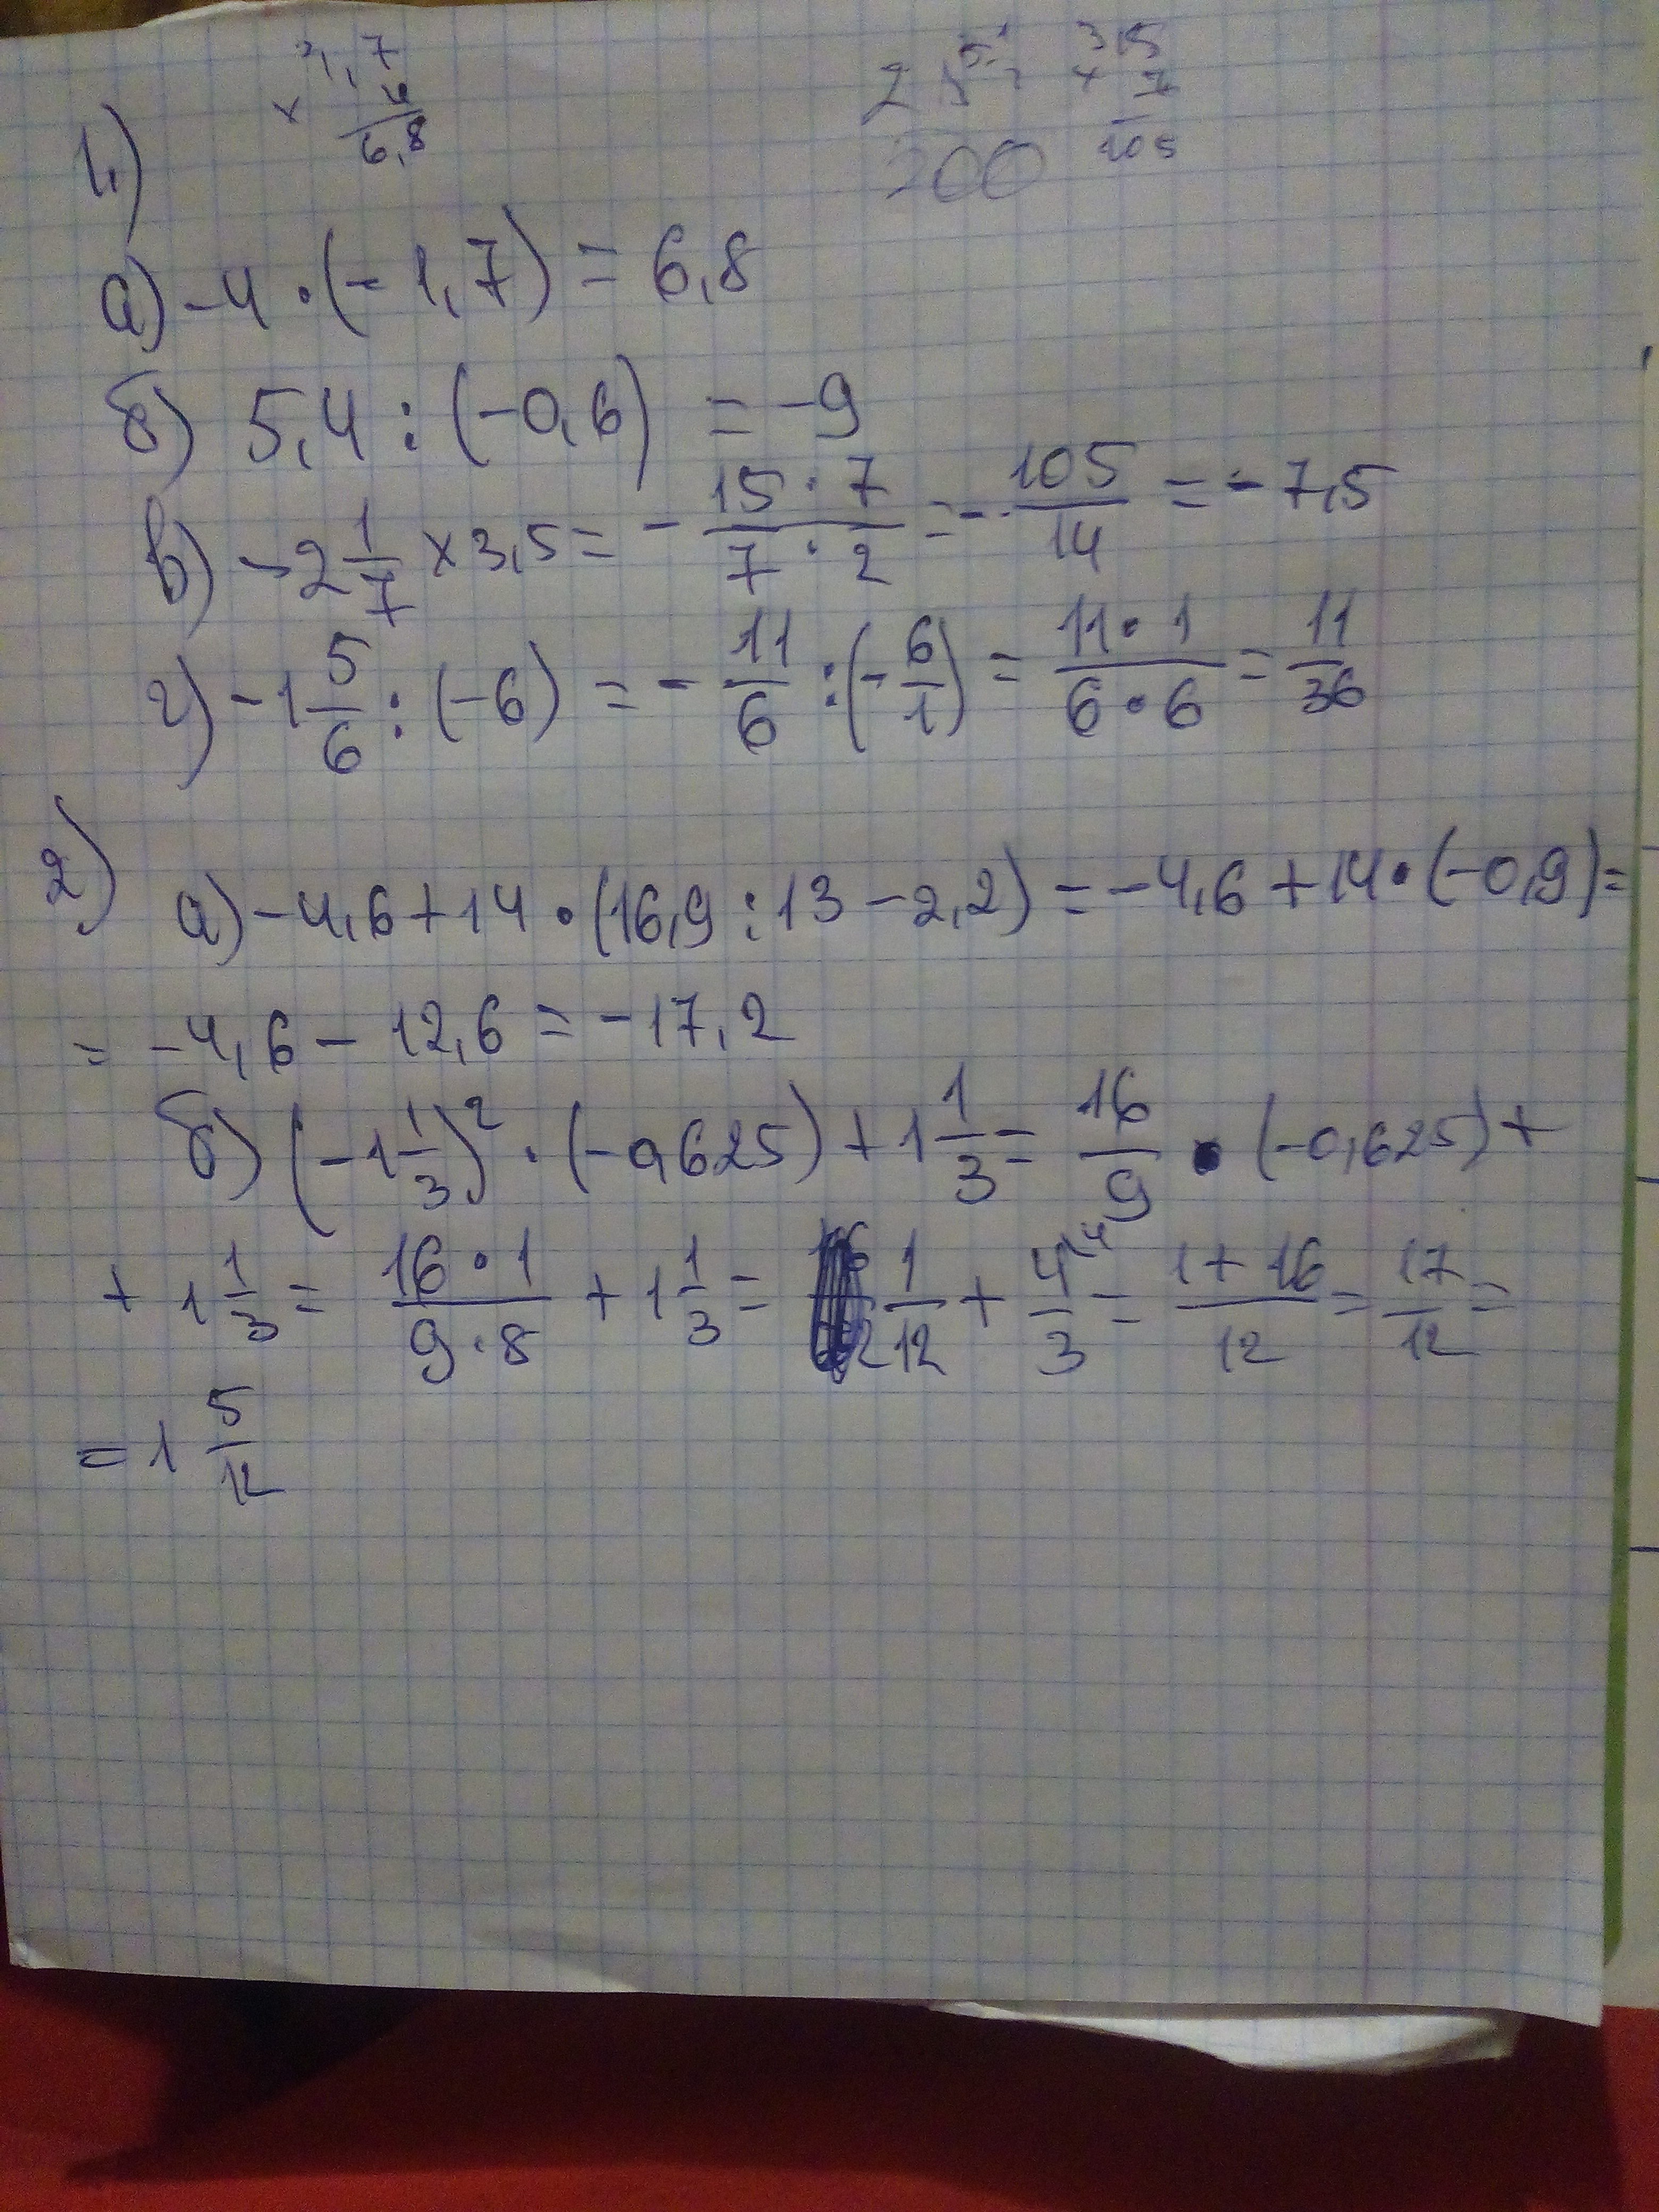 1,7
× 4
6,8
315
× 7
105
200
1.)
а) -4 · (-1,7) = 6,8
б) 5,4 : (-0,6) = -9
в) -2 1/7 × 3,5 = - 15·7/7·2 = - 105/14 = -7,5
г) -1 5/6 : (-6) = - 11/6 : (- 6/1) = 11·1/6·6 = 11/36
2)
а) -4,6 + 14 · (16,9 : 13 - 2,2) = -4,6 + 14 · (-0,9) =
= -4,6 - 12,6 = -17,2
б) (-1 1/3)² · (-0,625) + 1 1/3 = 16/9 · (-0,625) +
+ 1 1/3 = 16·1/9·8 + 1 1/3 = 1/12 + 4/3 \4 = 1+16/12 = 17/12 =
= 1 5/12